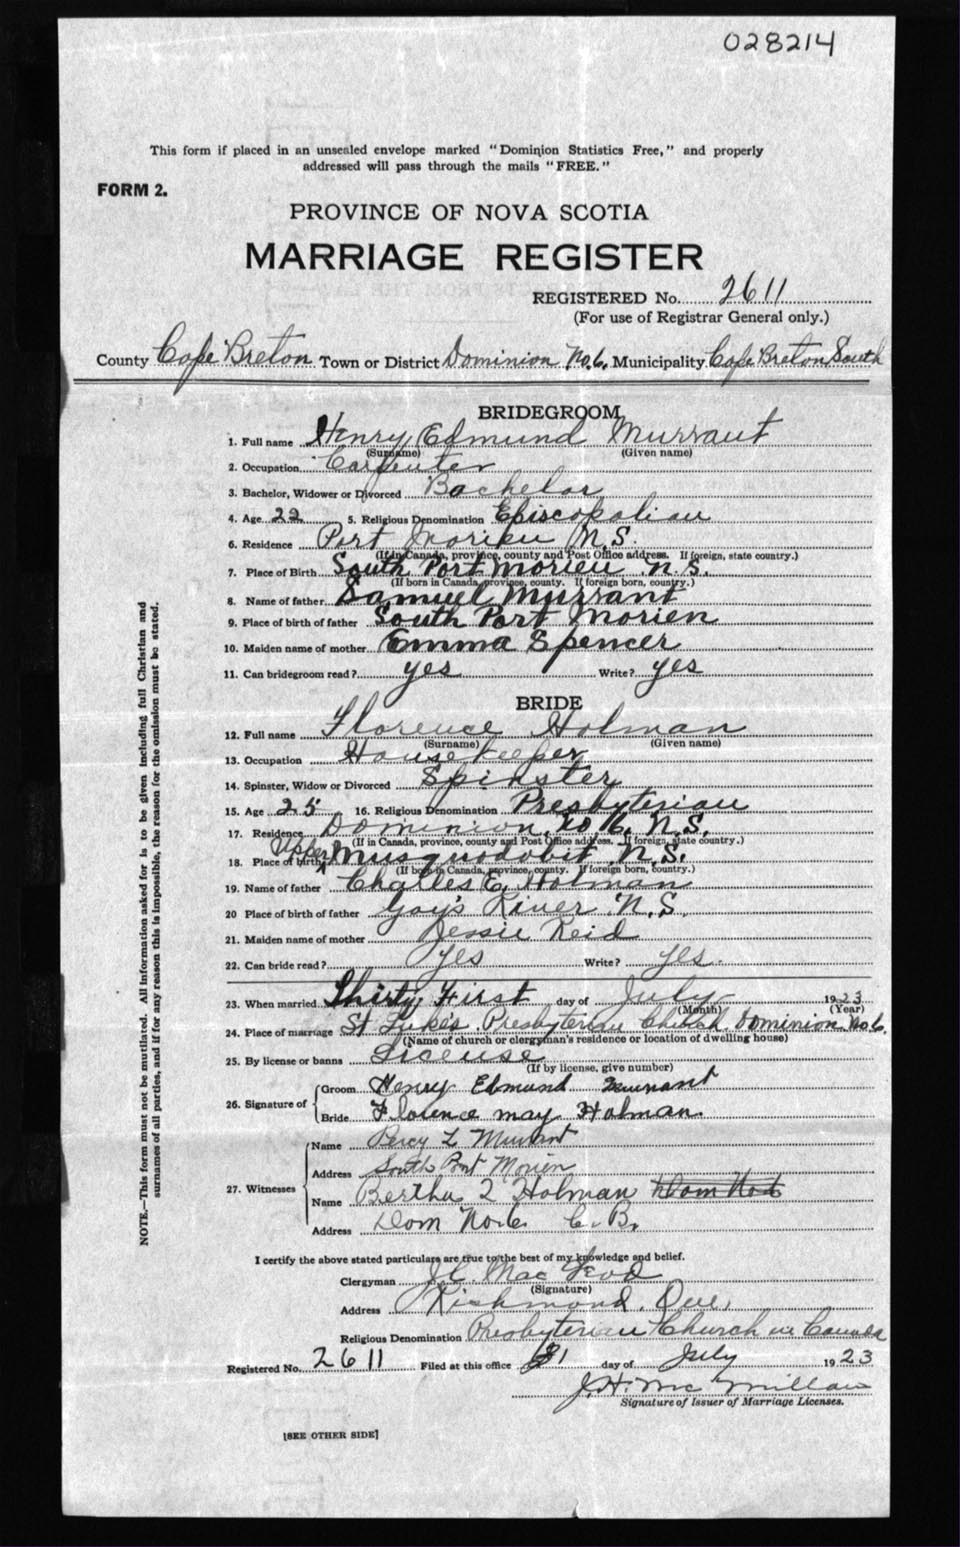 028214
This form if placed in an unsealed envelope marked "Dominion Statistics Free," and properly
addressed will pass through the mails "FREE."
FORM 2.
PROVINCE OF NOVA SCOTIA
MARRIAGE REGISTER
REGISTERED No. 2611
(For use of Registrar General only.)
County Cape Breton Town or District Dominion No. 6. Municipality Cape Breton South
BRIDEGROOM
1. Full name Henry Edmund Murrant
(Surname) (Given name)
2. Occupation Carpenter
3. Bachelor, Widower or Divorced Bachelor
4. Age 22 5. Religious Denomination Episcopalian
6. Residence Port Morien N.S.
(If in Canada, province, county and Post Office address. If foreign, state country.)
7. Place of Birth South Port Morien N.S.
(If born in Canada, province, county. If foreign born, country.)
8. Name of father Samuel Murrant
9. Place of birth of father South Port Morien
10. Maiden name of mother Emma Spencer
11. Can bridegroom read? yes Write? yes
BRIDE
12. Full name Florence Holman
(Surname) (Given name)
13. Occupation Housekeeper
14. Spinster, Widow or Divorced Spinster
15. Age 25 16. Religious Denomination Presbyterian
17. Residence Dominion, No 6. N.S.
(If in Canada, province, county and Post Office address. If foreign, state country.)
18. Place of birth Upper Musquodobit N.S.
(If born in Canada, province, county. If foreign born, country.)
19. Name of father Charles E. Holman
20 Place of birth of father Gay's River N.S.
21. Maiden name of mother Jessie Reid
22. Can bride read? yes Write? yes.
23. When married Thirty First day of July 1923
(Month) (Year)
24. Place of marriage St Luke's Presbyterian Church Dominion No 6.
(Name of church or clergyman's residence or location of dwelling house)
25. By license or banns License
(If by license, give number)
26. Signature of Groom Henry Edmund Murrant
Bride Florence may Holman.
27. Witnesses Name Percy L Murrant
Address South Port Morien
Name Bertha I Holman Dom No 6
Address Dom No 6 C.B.
I certify the above stated particulars are true to the best of my knowledge and belief.
Clergyman J.C. MacLeod
(Signature)
Address Richmond, Que,
Religious Denomination Presbyterian Church in Canada
Registered No. 2611 Filed at this office 31 day of July 1923
J.H. McMillan
Signature of Issuer of Marriage Licenses.
[SEE OTHER SIDE]
NOTE.—This form must not be mutilated. All information asked for is to be given including full Christian and
surnames of all parties, and if for any reason this is impossible, the reason for the omission must be stated.